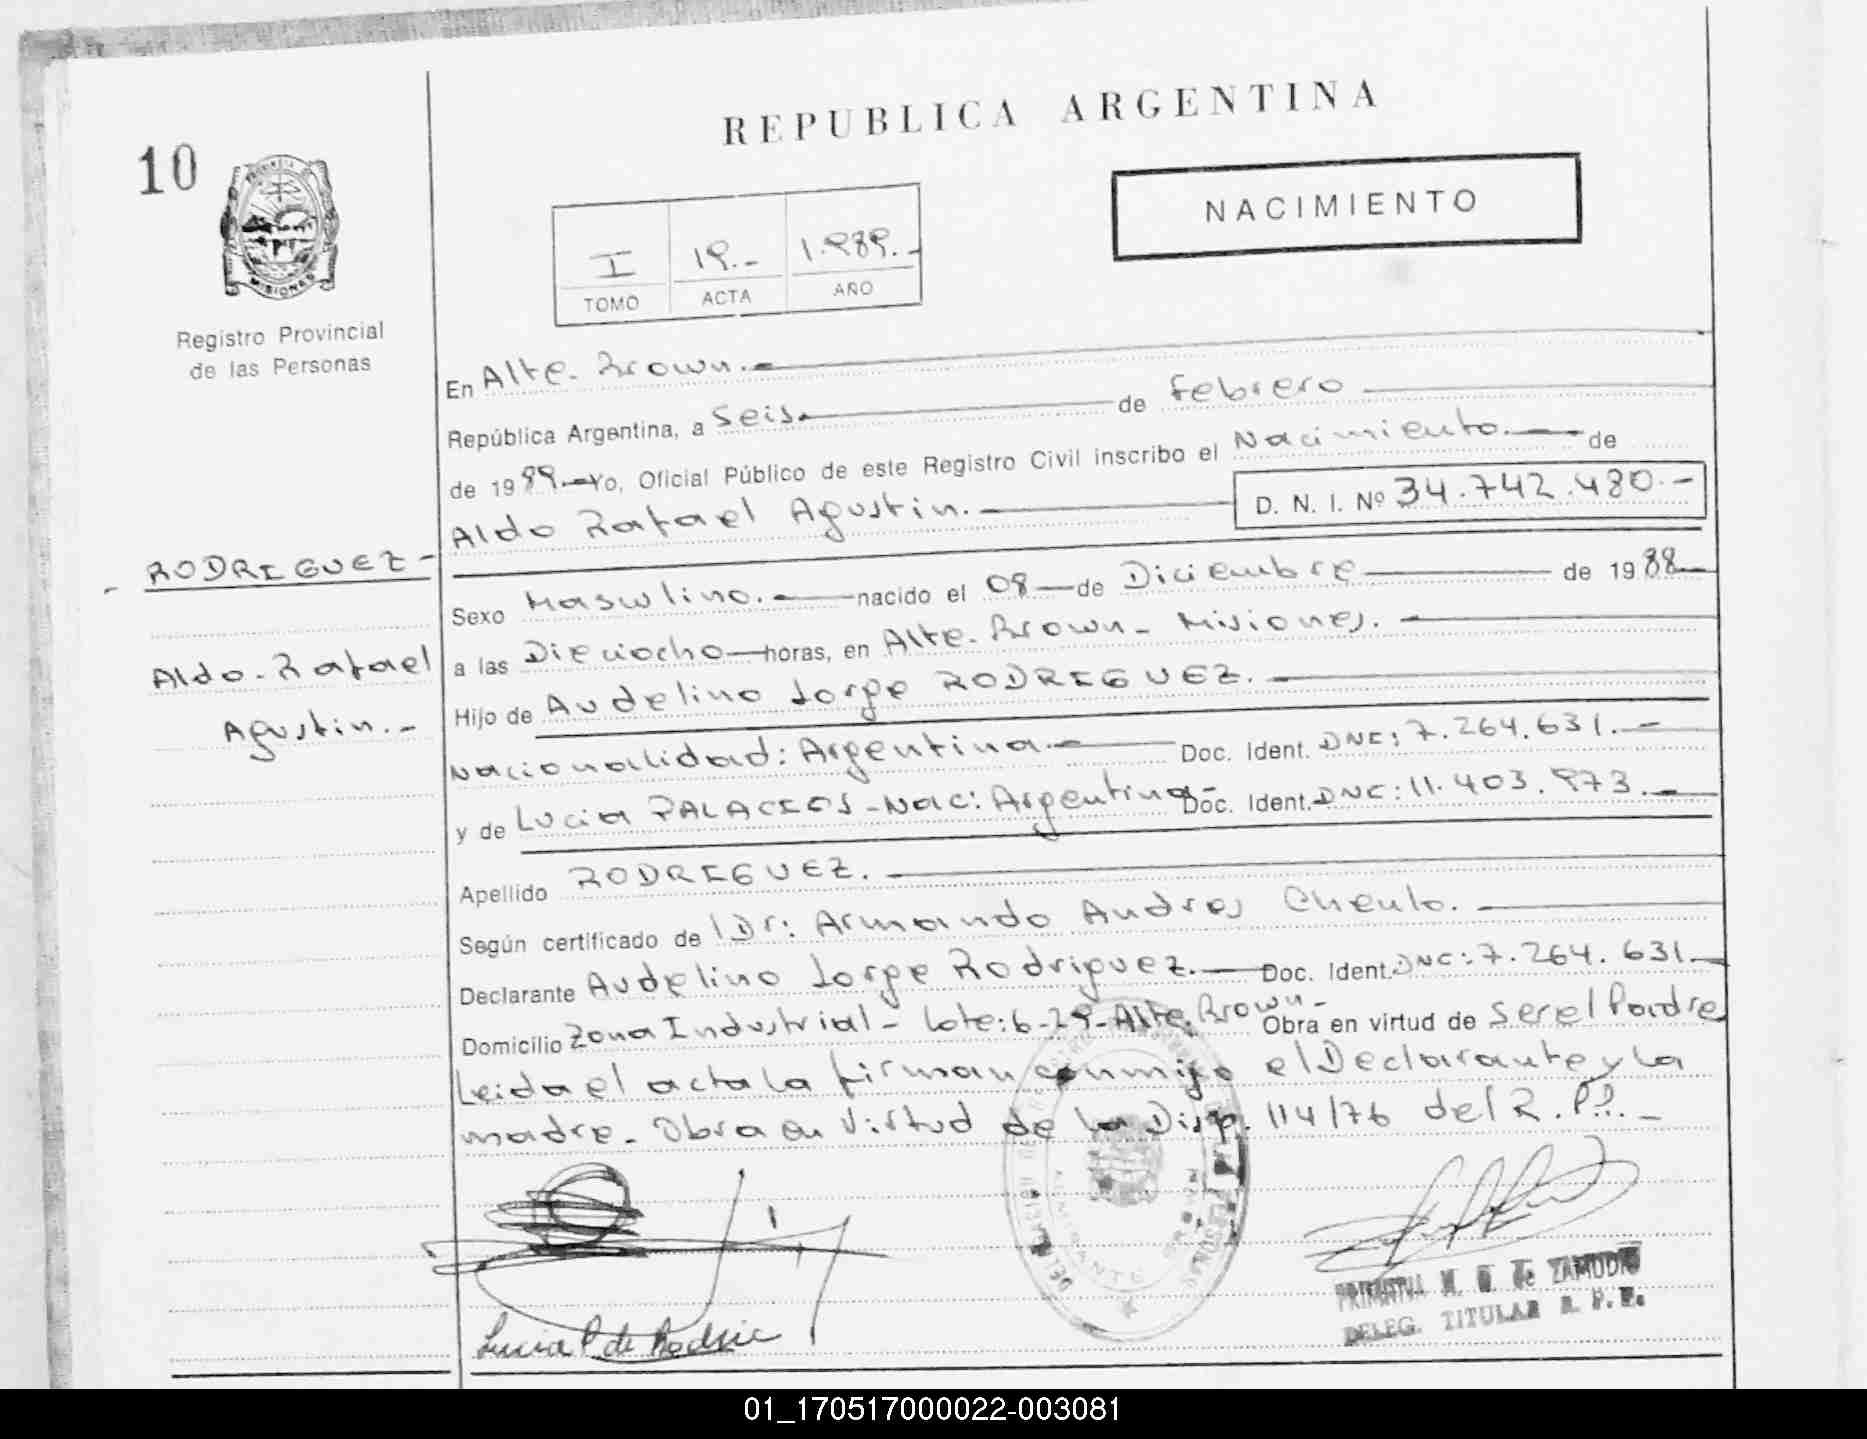 REPUBLICA ARGENTINA
10
NACIMIENTO
I 19.- 1.989.-
TOMO ACTA AÑO
Registro Provincial
de las Personas
En Alte. Brown.-
República Argentina, a Seis de Febrero
de 1989.- Yo, Oficial Público de este Registro Civil inscribo el Nacimiento. de
Aldo Rafael Agustin. D. N. I. Nº 34.742.480.-
- RODRIGUEZ -
Aldo - Rafael
Agustin.-
Sexo Masculino. nacido el 08 de Diciembre de 1988
a las Dieciocho horas, en Alte. Brown - Misiones.
Hijo de Audelino Jorge RODRIGUEZ.
Nacionalidad: Argentina.- Doc. Ident. DNI: 7.264.631.-
y de Lucia PALACIOS - Nac: Argentina- Doc. Ident. DNI: 11.403.973.-
Apellido RODRIGUEZ.
Según certificado de Dr: Armando Andres
Declarante Audelino Jorge Rodriguez. Doc. Ident. DNI: 7.264.631.
Domicilio Zona Industrial - Lote: 6-29- Alte. Brown- Obra en virtud de Ser el Padre
Leida el acta la firman conmigo el Declarante y la
madre. Obra en Virtud de la Disp. 114/76 del R.P.P.-
Lucia P de
ALMIRANTE BROWN
MISIONES
de ZAMUDIO
DELEG. TITULAR R. P. P.
01_170517000022-003081